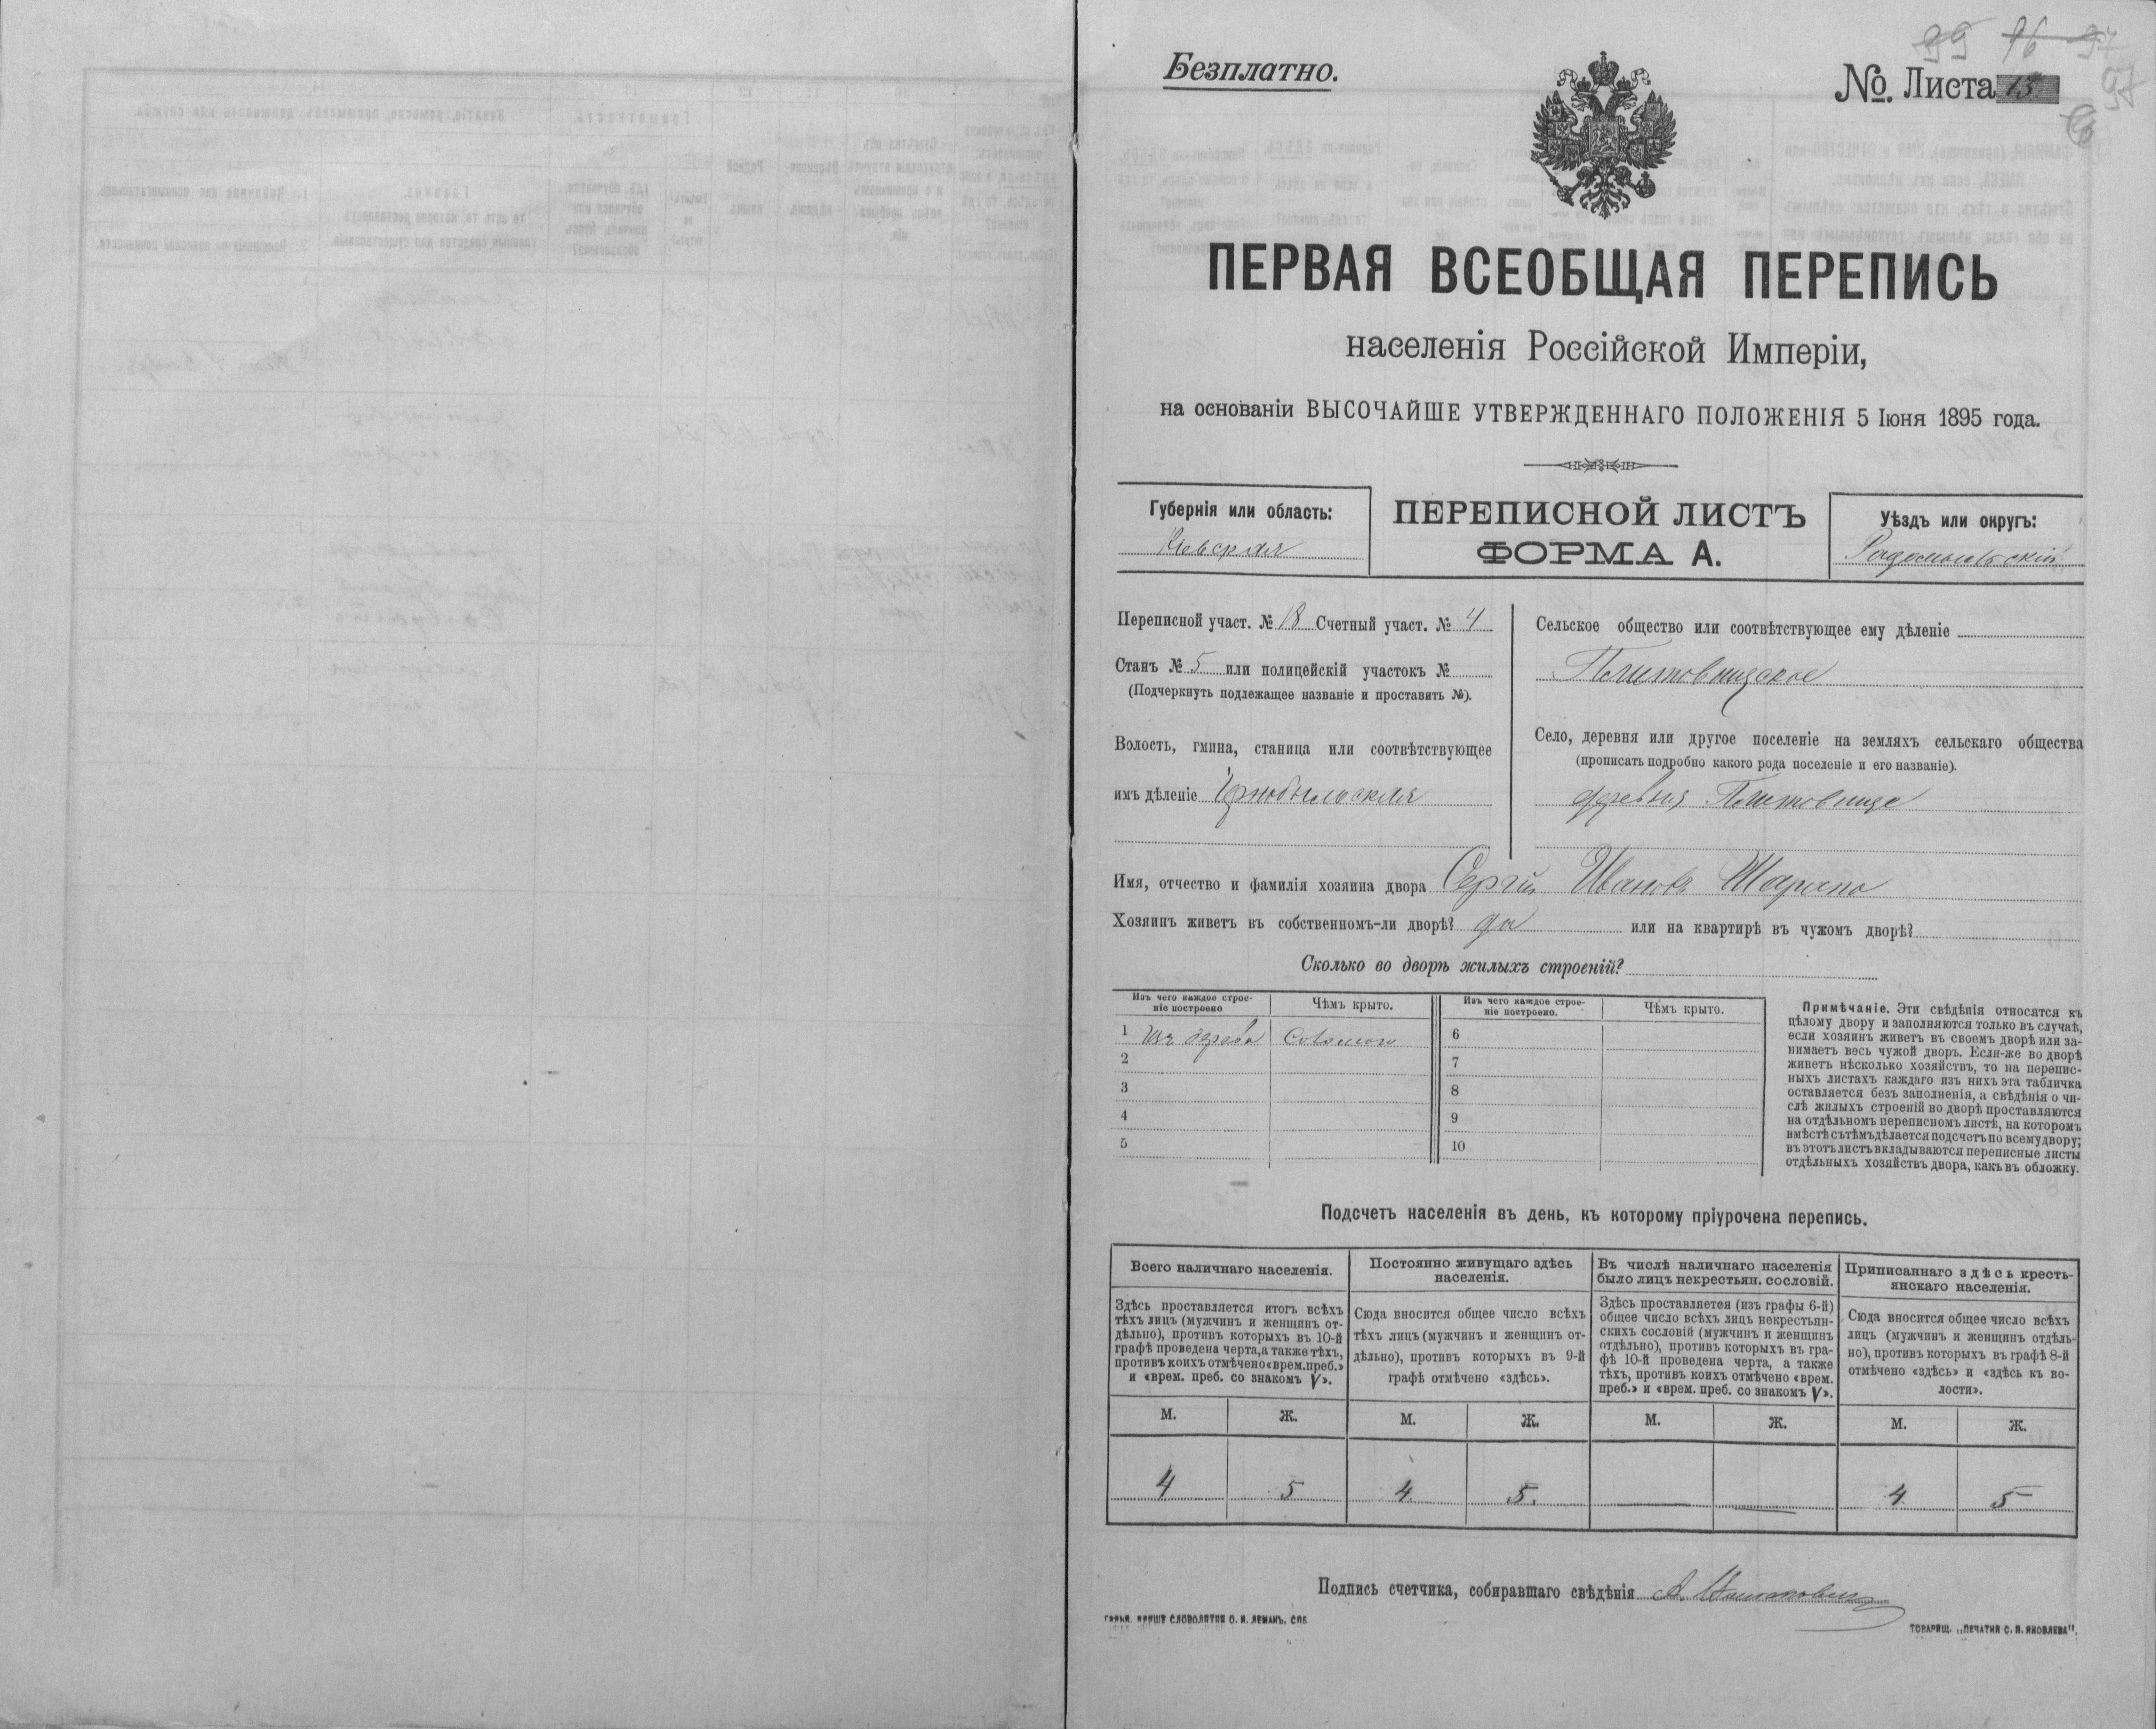 99 96 97
97
Безплатно.
№. Листа 13.
ПЕРВАЯ ВСЕОБЩАЯ ПЕРЕПИСЬ
населенія Россійской Имперіи,
на основаніи ВЫСОЧАЙШЕ УТВЕРЖДЕННАГО ПОЛОЖЕНІЯ 5 Іюня 1895 года.
Губернія или область:
Кіевская
ПЕРЕПИСНОЙ ЛИСТЪ
ФОРМА А.
Уѣздъ или округъ:
Радомысльскій
Переписной участ. № 18 Счетный участ. № 4
Станъ № 5 или полицейскій участокъ №
(Подчеркнуть подлежащее названіе и проставить №).
Волость, гмина, станица или соотвѣтствующее
имъ дѣленіе Чернобыльская
Сельское общество или соотвѣтствующее ему дѣленіе
Плитовищское
Село, деревня или другое поселеніе на земляхъ сельскаго общества
(прописать подробно какого рода поселеніе и его названіе).
деревня Плитовище
Имя, отчество и фамилія хозяина двора Сергій Ивановъ Шарапо
Хозяинъ живетъ въ собственномъ-ли дворѣ? да или на квартирѣ въ чужомъ дворѣ?
Сколько во дворѣ жилыхъ строеній?
Изъ чего каждое строе-
ніе построено
Чѣмъ крыто.
Изъ чего каждое строе-
ніе построено.
Чѣмъ крыто.
1 изъ дерева соломою
2
3
4
5
6
7
8
9
10
Примѣчаніе. Эти свѣдѣнія относятся къ
цѣлому двору и заполняются только въ случаѣ,
если хозяинъ живетъ въ своемъ дворѣ или за-
нимаетъ весь чужой дворъ. Если-же во дворѣ
живетъ нѣсколько хозяйствъ, то на перепис-
ныхъ листахъ каждаго изъ нихъ эта табличка
оставляется безъ заполненія, а свѣдѣнія о чи-
слѣ жилыхъ строеній во дворѣ проставляются
на отдѣльномъ переписномъ листѣ, на которомъ
вмѣстѣ съ тѣмъ дѣлается подсчетъ по всему двору;
въ этотъ листъ вкладываются переписные листы
отдѣльныхъ хозяйствъ двора, какъ въ обложку.
Подсчетъ населенія въ день, къ которому пріурочена перепись.
Всего наличнаго населенія.
Здѣсь проставляется итогъ всѣхъ
тѣхъ лицъ (мужчинъ и женщинъ от-
дѣльно), противъ которыхъ въ 10-й
графѣ проведена черта, а также тѣхъ,
противъ коихъ отмѣчено «врем. преб.»
и «врем. преб. со знакомъ V».
Постоянно живущаго здѣсь
населенія.
Сюда вносится общее число всѣхъ
тѣхъ лицъ (мужчинъ и женщинъ от-
дѣльно), противъ которыхъ въ 9-й
графѣ отмѣчено «здѣсь».
Въ числѣ наличнаго населенія
было лицъ некрестьян. сословій.
Здѣсь проставляется (изъ графы 6-й)
общее число всѣхъ лицъ некрестьян-
скихъ сословій (мужчинъ и женщинъ
отдѣльно), противъ которыхъ въ гра-
фѣ 10-й проведена черта, а также
тѣхъ, противъ коихъ отмѣчено «врем.
преб.» и «врем. преб. со знакомъ V».
Приписаннаго здѣсь кресть-
янскаго населенія.
Сюда вносится общее число всѣхъ
лицъ (мужчинъ и женщинъ отдѣль-
но), противъ которыхъ въ графѣ 8-й
отмѣчено «здѣсь» и «здѣсь къ во-
лости».
М. Ж. М. Ж. М. Ж. М. Ж.
4 5 4 5. — — 4 5
Подпись счетчика, собиравшаго свѣдѣнія А.
СЛОВОЛИТНИ О. И. ЛЕМАНЪ. СПБ
ТОВАРИЩ. „ПЕЧАТНЯ С. П. ЯКОВЛЕВА".